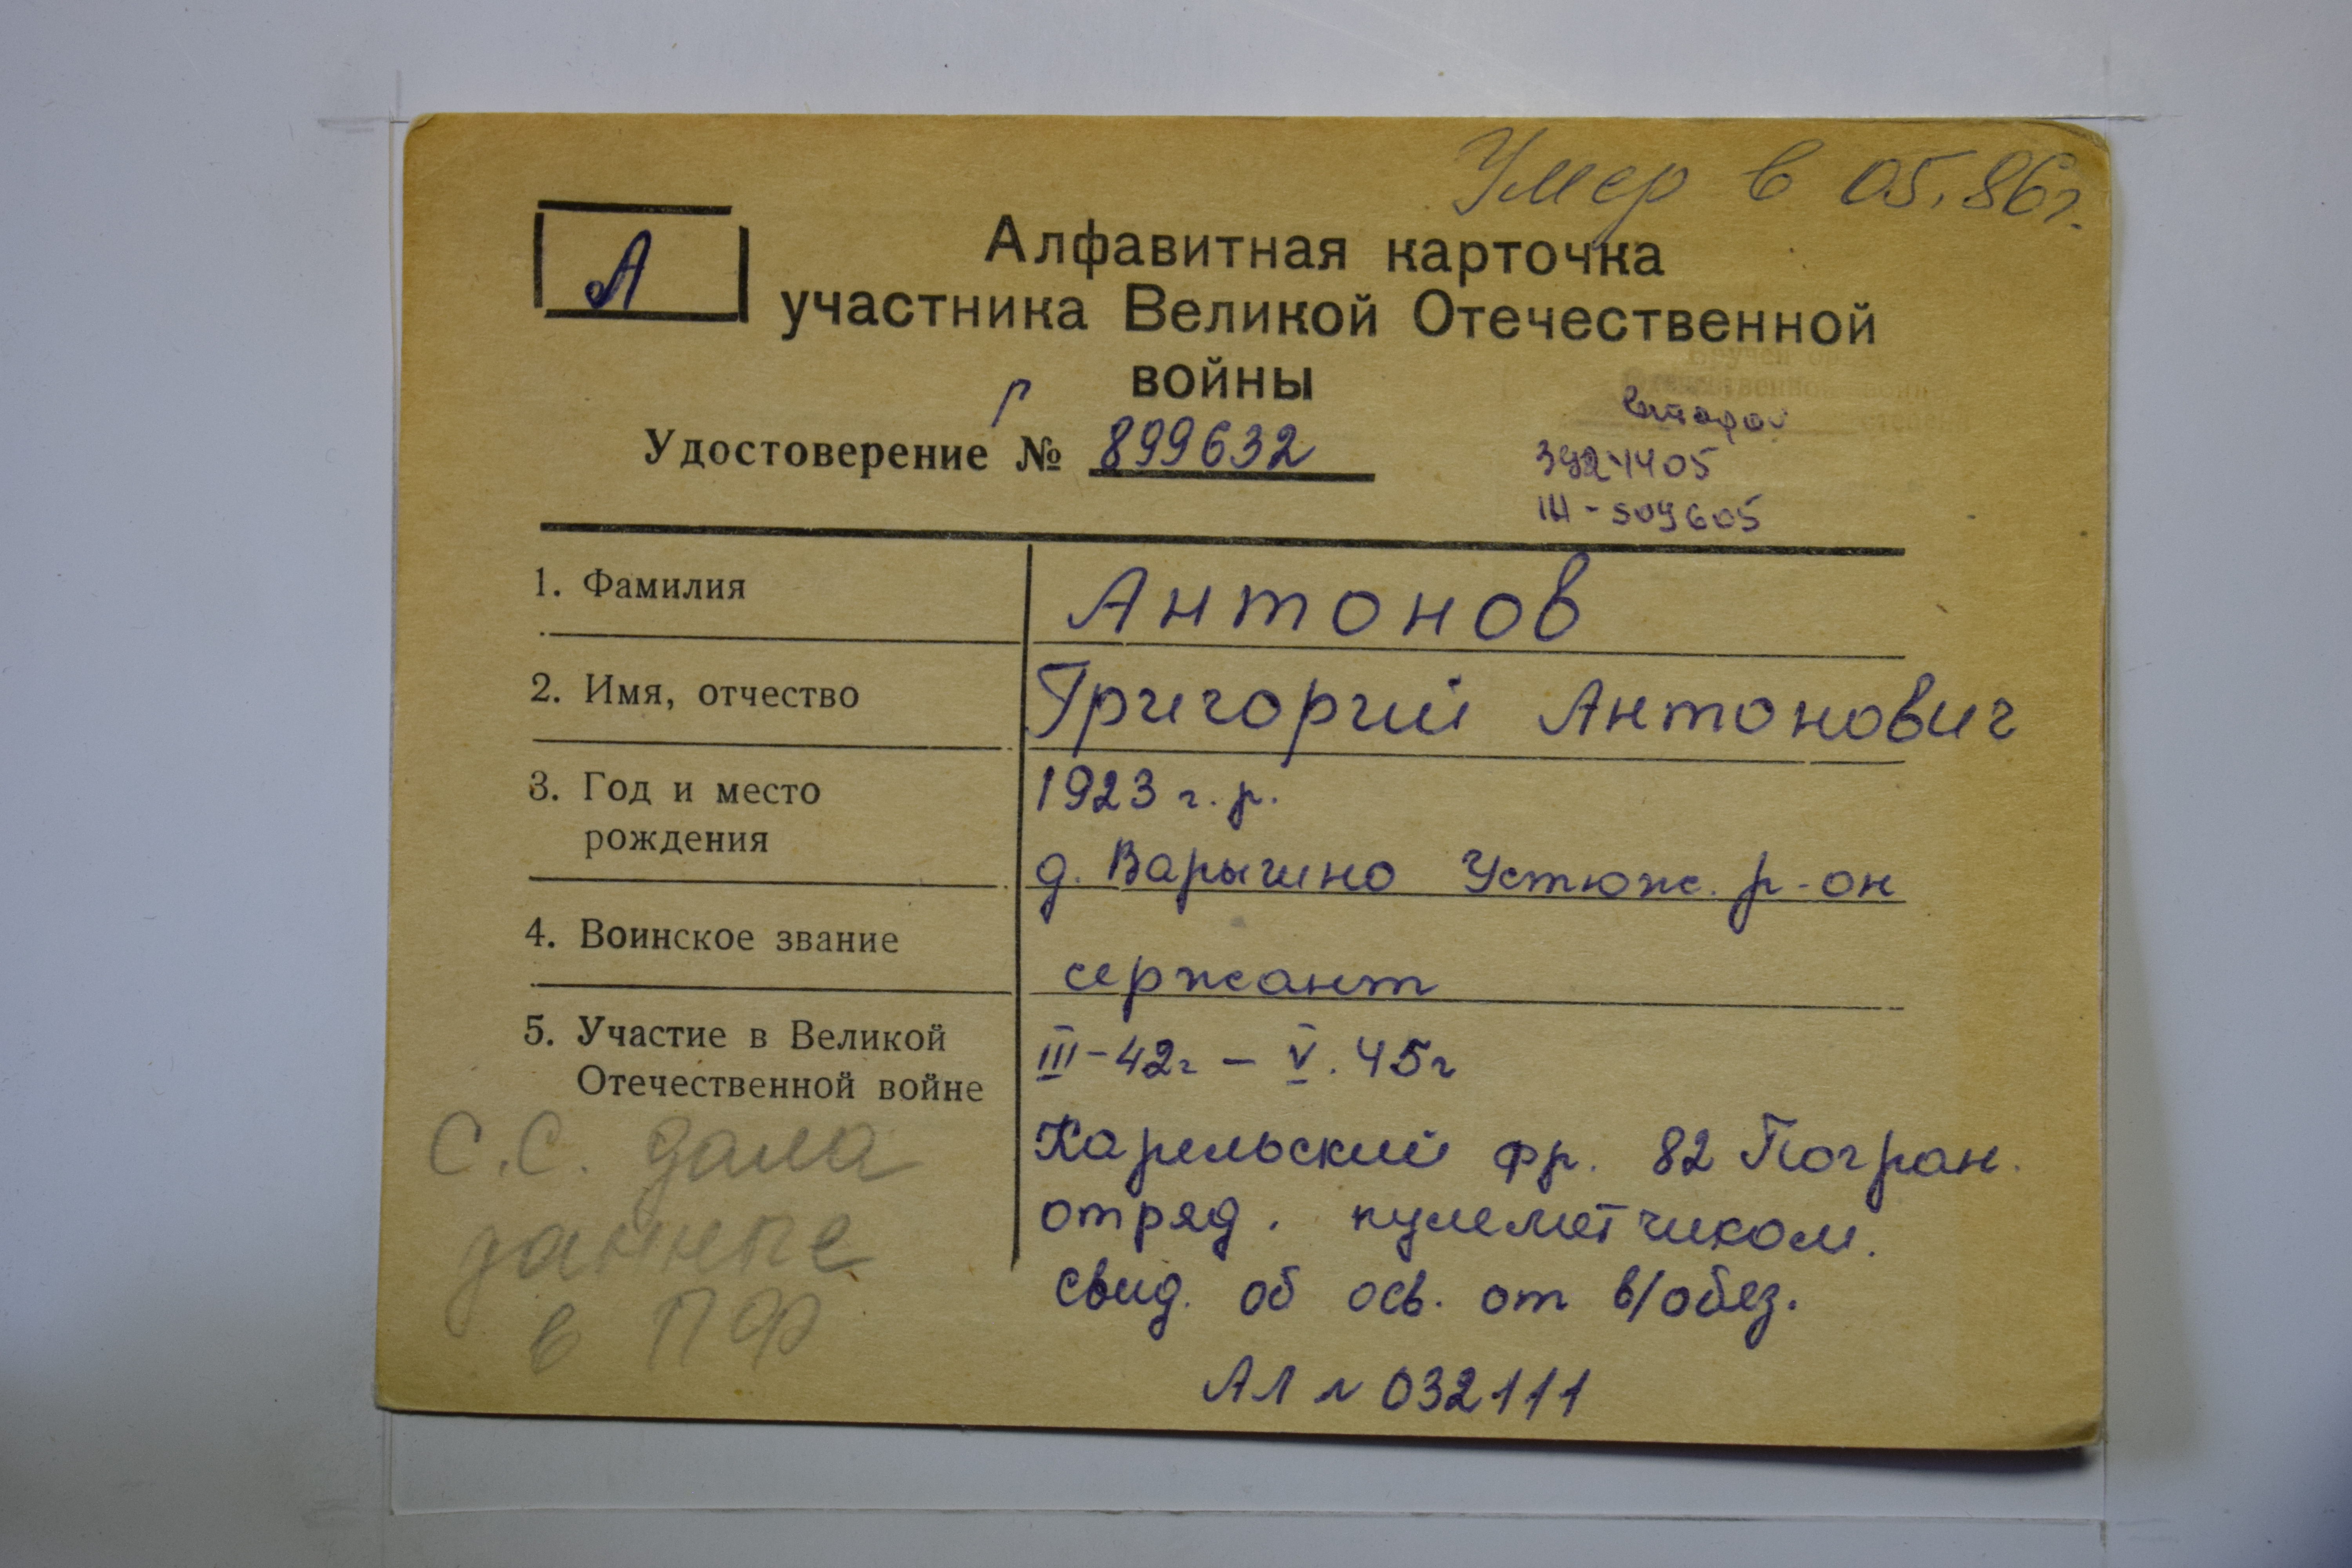 Умер в 05.86г.
А
Алфавитная карточка
участника Великой Отечественной
войны
Вручен
Отечественной войны
второй степени
Удостоверение Р № 899632
3924405
III - 509605
1. Фамилия
Антонов
2. Имя, отчество
Григорий Антонович
3. Год и место
рождения
1923 г.р.
д. Варыгино Устюж. р-он
4. Воинское звание
сержант
5. Участие в Великой
Отечественной войне
III-42г – V.45г
Карельский фр. 82 Погран.
отряд. пулеметчиком.
свид. об осв. от в/обяз.
АЛ № 032111
С.С. дала
данные
в ПФ